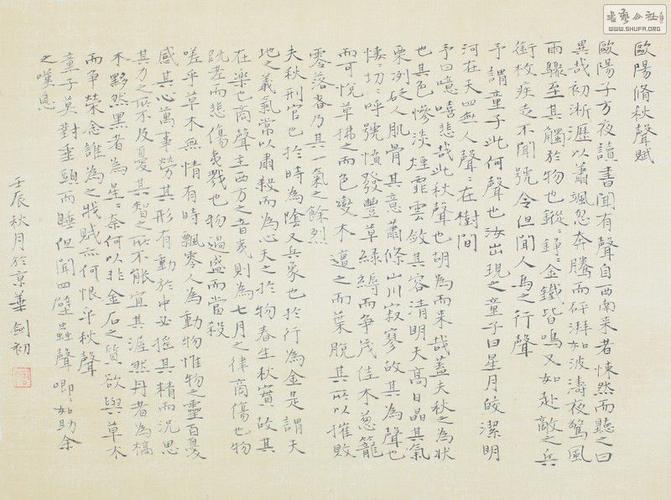 歐陽脩秋聲賦
歐陽子方夜讀書聞有聲自西南來者悚然而聽之曰
異哉初淅瀝以蕭颯忽奔騰而砰湃如波濤夜驚風
雨驟至其觸於物也鏦鏦錚錚金鐵皆鳴又如赴敵之兵
銜枚疾走不聞號令但聞人馬之行聲
予謂童子此何聲也汝出視之童子曰星月皎潔明
河在天四無人聲聲在樹間
予曰噫嘻悲哉此秋聲也胡為而來哉蓋夫秋之為狀
也其色慘淡煙霏雲斂其容清明天高日晶其氣
栗冽砭人肌骨其意蕭條山川寂寥故其為聲也
悽悽切切呼號憤發豐草綠縟而爭茂佳木蔥籠
而可悅草拂之而色變木遭之而葉脫其所以摧敗
零落者乃其一氣之餘烈
夫秋刑官也於時為陰又兵象也於行為金是謂天
地之義氣常以肅殺而為心天之於物春生秋實故其
在樂也商聲主西方之音夷則為七月之律商傷也物
既老而悲傷夷戮也物過盛而當殺
嗟乎草木無情有時飄零人為動物惟物之靈百憂
感其心萬事勞其形有動於中必搖其精而況思
其力之所不及憂其智之所不能宜其渥然丹者為槁
木黟然黑者為星星奈何以非金石之質欲與草木
而爭榮念誰為之戕賊亦何恨乎秋聲
童子莫對垂頭而睡但聞四壁蟲聲唧唧如助余
之嘆息
壬辰秋月於京華劍初
WWW.SHUFA.ORG